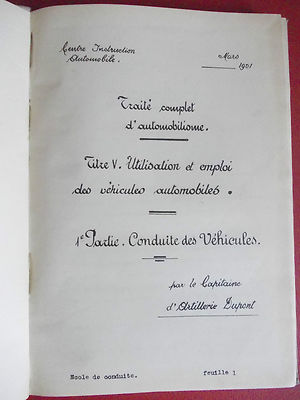 Centre Instruction
Automobile.
Mars
1921
Traité complet
d'automobilisme.
Titre V. Utilisation et emploi
des véhicules automobiles.
1e Partie. Conduite des Véhicules.
par le Capitaine
d'Artillerie Dupont
Ecole de conduite.
feuille 1